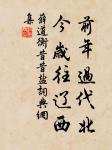 前年過代北
今歲往遼西
薛道衡昔昔鹽詞典網
集